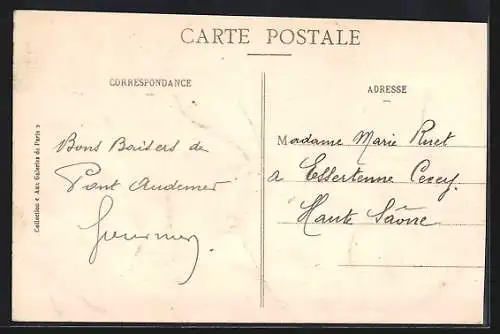 CARTE POSTALE
CORRESPONDANCE
ADRESSE
Collection « Aux Galeries de Paris »
Bons Baisers de
Pont Audemer
Madame Marie
a Essertenne Cecey.
Haute Saône